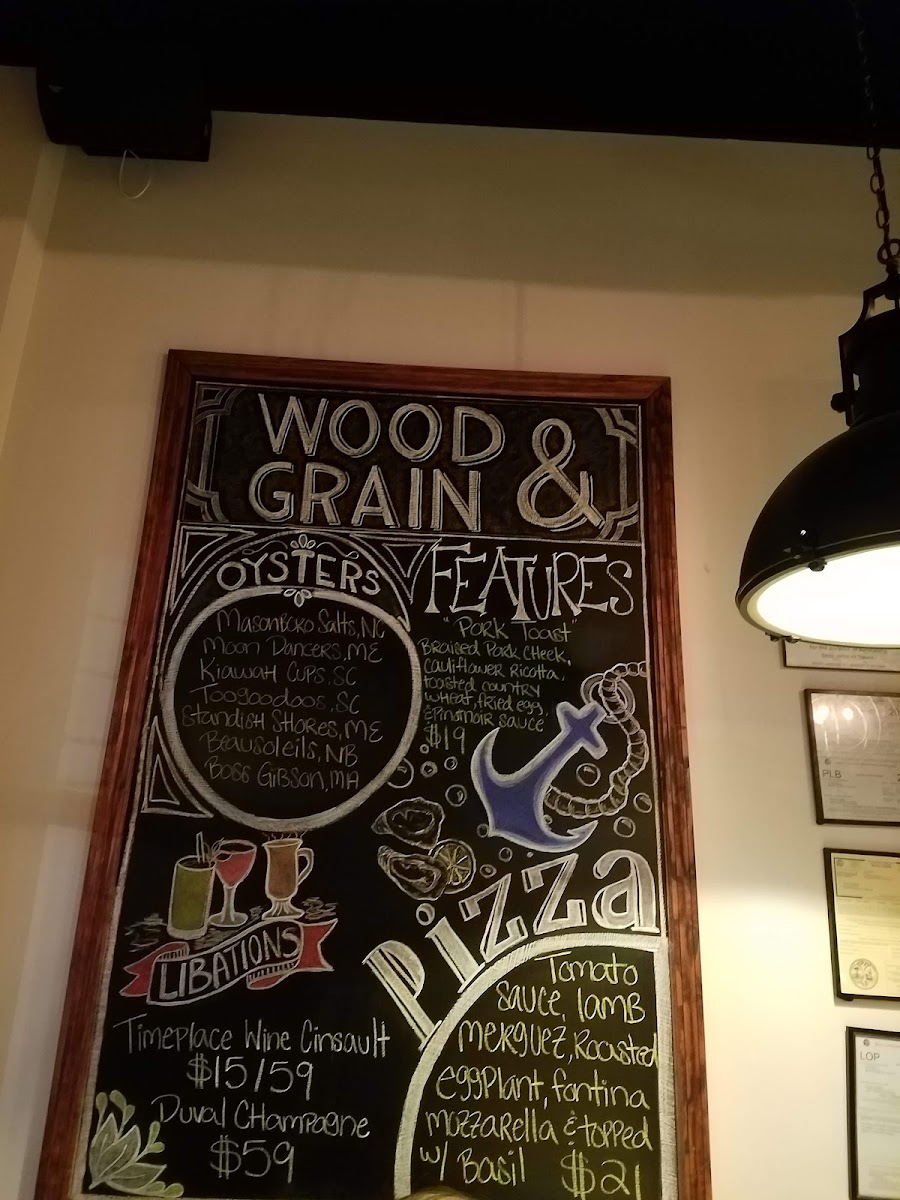 WOOD &
GRAIN
OYSTERS
Masonboro Salts, NC
Moon Dancers, ME
Kiawah Cups, SC
Toogoodoos, SC
Standish Shores, ME
Beausoleils, NB
Boss Gibson, MA
FEATURES
"Pork Toast"
Braised Pork Cheek,
cauliflower ricotta,
toasted country
wheat, fried egg,
& Pinot noir sauce
$19
LIBATIONS
Timeplace Wine Cinsault
$15/59
Duval Champagne
$59
Pizza
Tomato
sauce, lamb
merguez, Roasted
eggplant, fontina
mozzarella & topped
w/ Basil $21
PLB
LOP